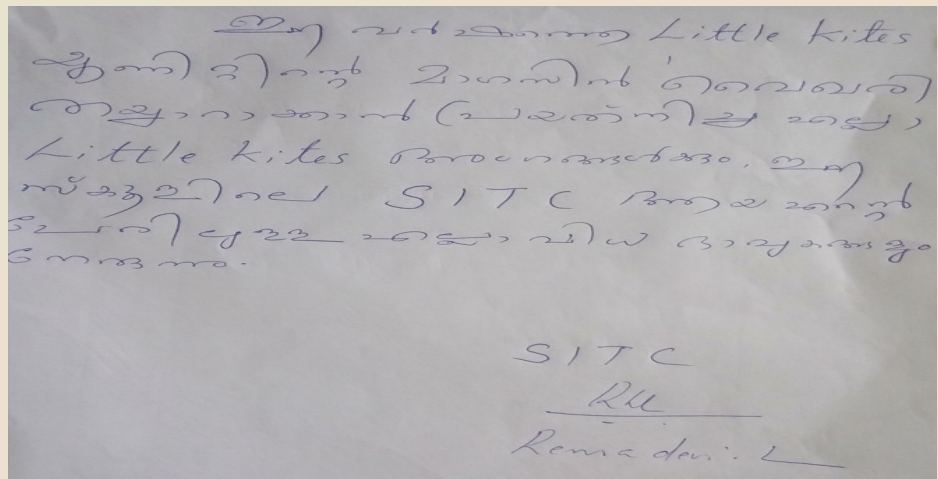 ഈ വർഷത്തെ Little Kites
യൂണിറ്റിന്റെ മാഗസിൻ വൈഖരി
തയ്യാറാക്കാൻ പ്രയത്നിച്ച എല്ലാ
Little Kites അംഗങ്ങൾക്കും. ഈ
സ്കൂളിലെ SITC ആയ എന്റെ
പേരിലുള്ള എല്ലാവിധ ഭാവുകങ്ങളും
നേരുന്നു.
SITC
Rema devi. L